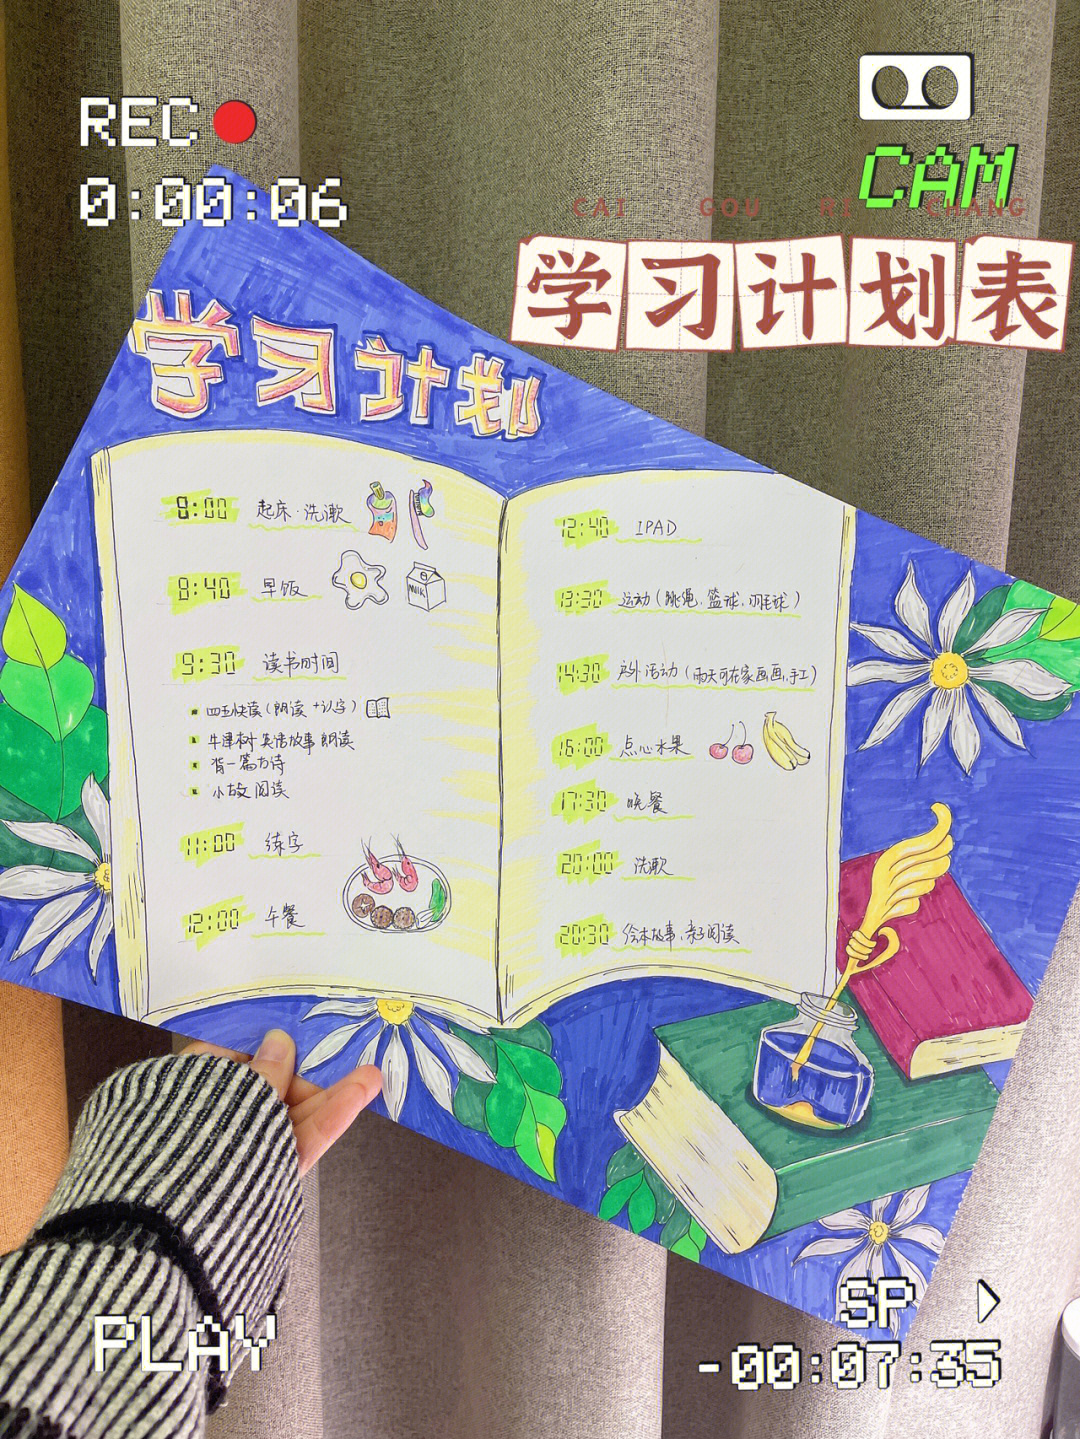 REC
0:00:06
CAM
CAI GOU RI CHANG
学习计划表
学习计划
8:00 起床·洗漱
8:40 早饭
MILK
9:30 读书时间
四五快读(朗读+认字)
牛津树英语故事朗读
背一篇古诗
小故文阅读
11:00 练字
12:00 午餐
12:40 IPAD
13:30 运动(跳绳、篮球、羽毛球)
14:30 户外活动(雨天可在家画画、手工)
16:00 点心水果
17:30 晚餐
20:00 洗漱
20:30 绘本故事、亲子阅读
PLAY
SP
-00:07:35